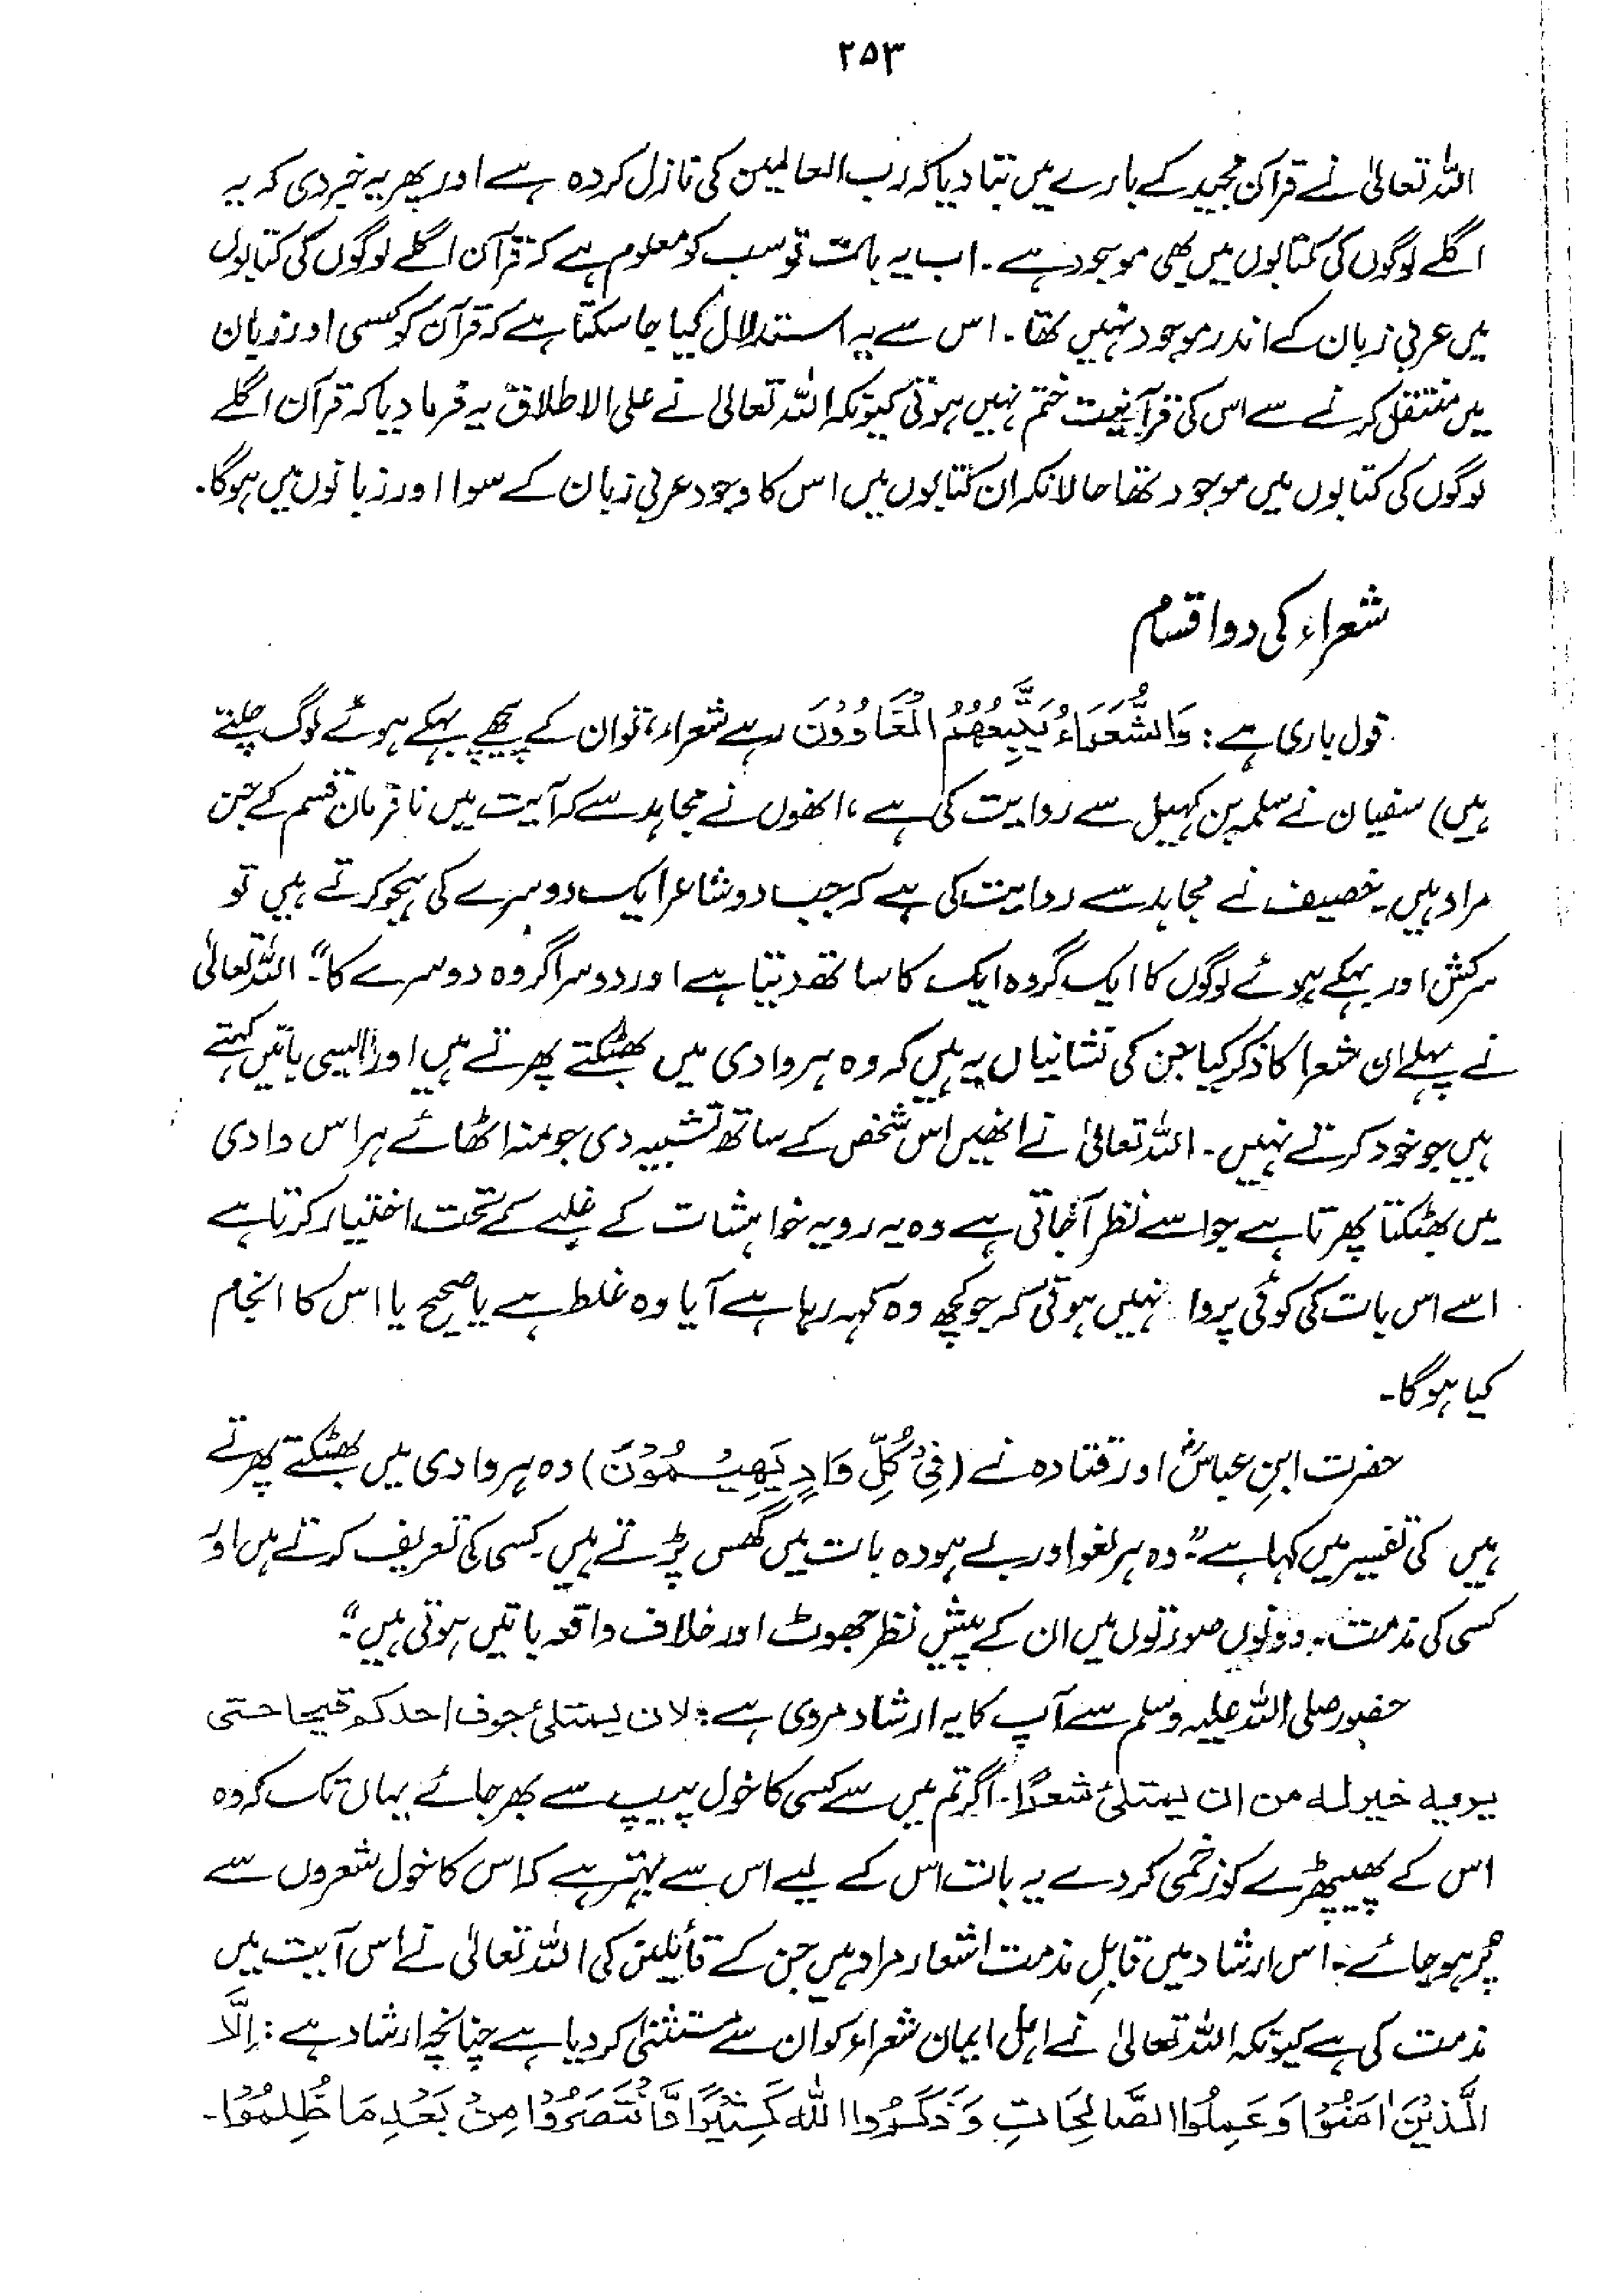 ۲۵۳
اللہ تعالیٰ نے قرآن مجید کے بارے میں بتا دیا کہ رب العالمین کی نازل کردہ ہے اور پھر یہ خبر دی کہ یہ
اگلے لوگوں کی کتابوں میں بھی موجود ہے۔ اب یہ بات تو سب کو معلوم ہے کہ قرآن اگلے لوگوں کی کتابوں
میں عربی زبان کے اندر موجود نہیں تھا۔ اس سے یہ استدلال کیا جا سکتا ہے کہ قرآن کو کسی اور زبان
میں منتقل کرنے سے اس کی قرآنیت ختم نہیں ہوتی کیونکہ اللہ تعالیٰ نے علی الاطلاق یہ فرما دیا کہ قرآن اگلے
لوگوں کی کتابوں میں موجود تھا حالانکہ ان کتابوں میں اس کا وجود عربی زبان کے سوا اور زبانوں میں ہوگا۔
شعراء کی دو اقسام
قول باری ہے: وَالشُّعَرَاءُ يَتَّبِعُهُمُ الْغَاوُوْنَ رہے شعراء، تو ان کے پیچھے بہکے ہوئے لوگ چلتے
ہیں) سفیان نے سلمہ بن کہیل سے روایت کی ہے، انھوں نے مجاہد سے کہ آیت میں نافرمان قسم کے جن
مراد ہیں۔ خصیف نے مجاہد سے روایت کی ہے کہ جب دو شاعر ایک دوسرے کی ہجو کرتے ہیں تو
سرکش اور بہکے ہوئے لوگوں کا ایک گروہ ایک کا ساتھ دیتا ہے اور دوسرا گروہ دوسرے کا"۔ اللہ تعالیٰ
نے پہلے ان شعرا کا ذکر کیا جن کی نشانیاں یہ ہیں کہ وہ ہر وادی میں بھٹکتے پھرتے ہیں اور ایسی باتیں کہتے
ہیں جو خود کرتے نہیں۔ اللہ تعالیٰ نے انھیں اس شخص کے ساتھ تشبیہ دی جو منہ اٹھائے ہر اس وادی
میں بھٹکتا پھرتا ہے جو اسے نظر آجاتی ہے وہ یہ رویہ خواہشات کے غلبے کے تحت اختیار کرتا ہے
اسے اس بات کی کوئی پروا نہیں ہوتی کہ جو کچھ وہ کہہ رہا ہے آیا وہ غلط ہے یا صحیح یا اس کا انجام
کیا ہوگا۔
حضرت ابنِ عباسؓ اور قتادہ نے (فِیْ كُلِّ وَادٍ يَهِيْمُوْنَ) وہ ہر وادی میں بھٹکتے پھرتے
ہیں کی تفسیر میں کہا ہے"۔ وہ ہر لغو اور بے ہودہ بات میں گھس پڑتے ہیں۔ کسی کی تعریف کرتے ہیں اور
کسی کی مذمت۔ دونوں صورتوں میں ان کے پیش نظر جھوٹ اور خلاف واقعہ باتیں ہوتی ہیں"۔
حضور صلی اللہ علیہ وسلم سے آپ کا یہ ارشاد مروی ہے: لان یمتلئ جوف احدکم قیحا حتی
یریه خیر له من ان یمتلئ شعرًا۔ اگر تم میں سے کسی کا خول پیپ سے بھر جائے یہاں تک کہ وہ
اس کے پھیپھڑے کو زخمی کر دے یہ بات اس کے لیے اس سے بہتر ہے کہ اس کا خول شعروں سے
پُر ہو جائے۔ اس ارشاد میں قابلِ مذمت اشعار مراد ہیں جن کے قائلین کی اللہ تعالیٰ نے اس آیت میں
مذمت کی ہے کیونکہ اللہ تعالیٰ نے اہل ایمان شعراء کو ان سے مستثنیٰ کر دیا ہے چنانچہ ارشاد ہے: اِلَّا
الَّذِيْنَ اٰمَنُوْا وَعَمِلُوا الصَّالِحَاتِ وَذَكَرُوا اللّٰهَ كَثِيْرًا وَّانْتَصَرُوْا مِنْ بَعْدِ مَا ظُلِمُوْا۔